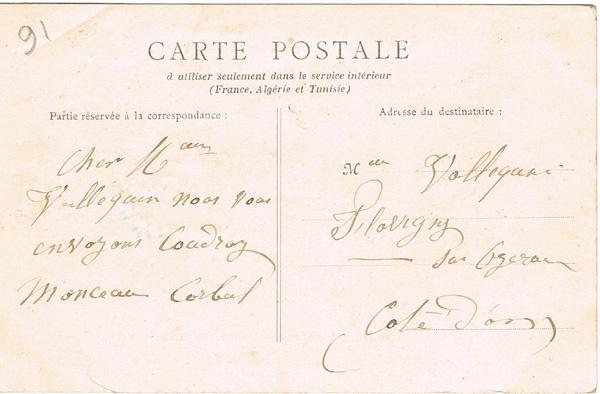 91
CARTE POSTALE
à utiliser seulement dans le service intérieur
(France, Algérie et Tunisie)
Partie réservée à la correspondance :
Cher M
nous vous
envoyons Coudray
Monceau Corbeil
Adresse du destinataire :
M
Flavigny
sur Ozerain
Cote d'or